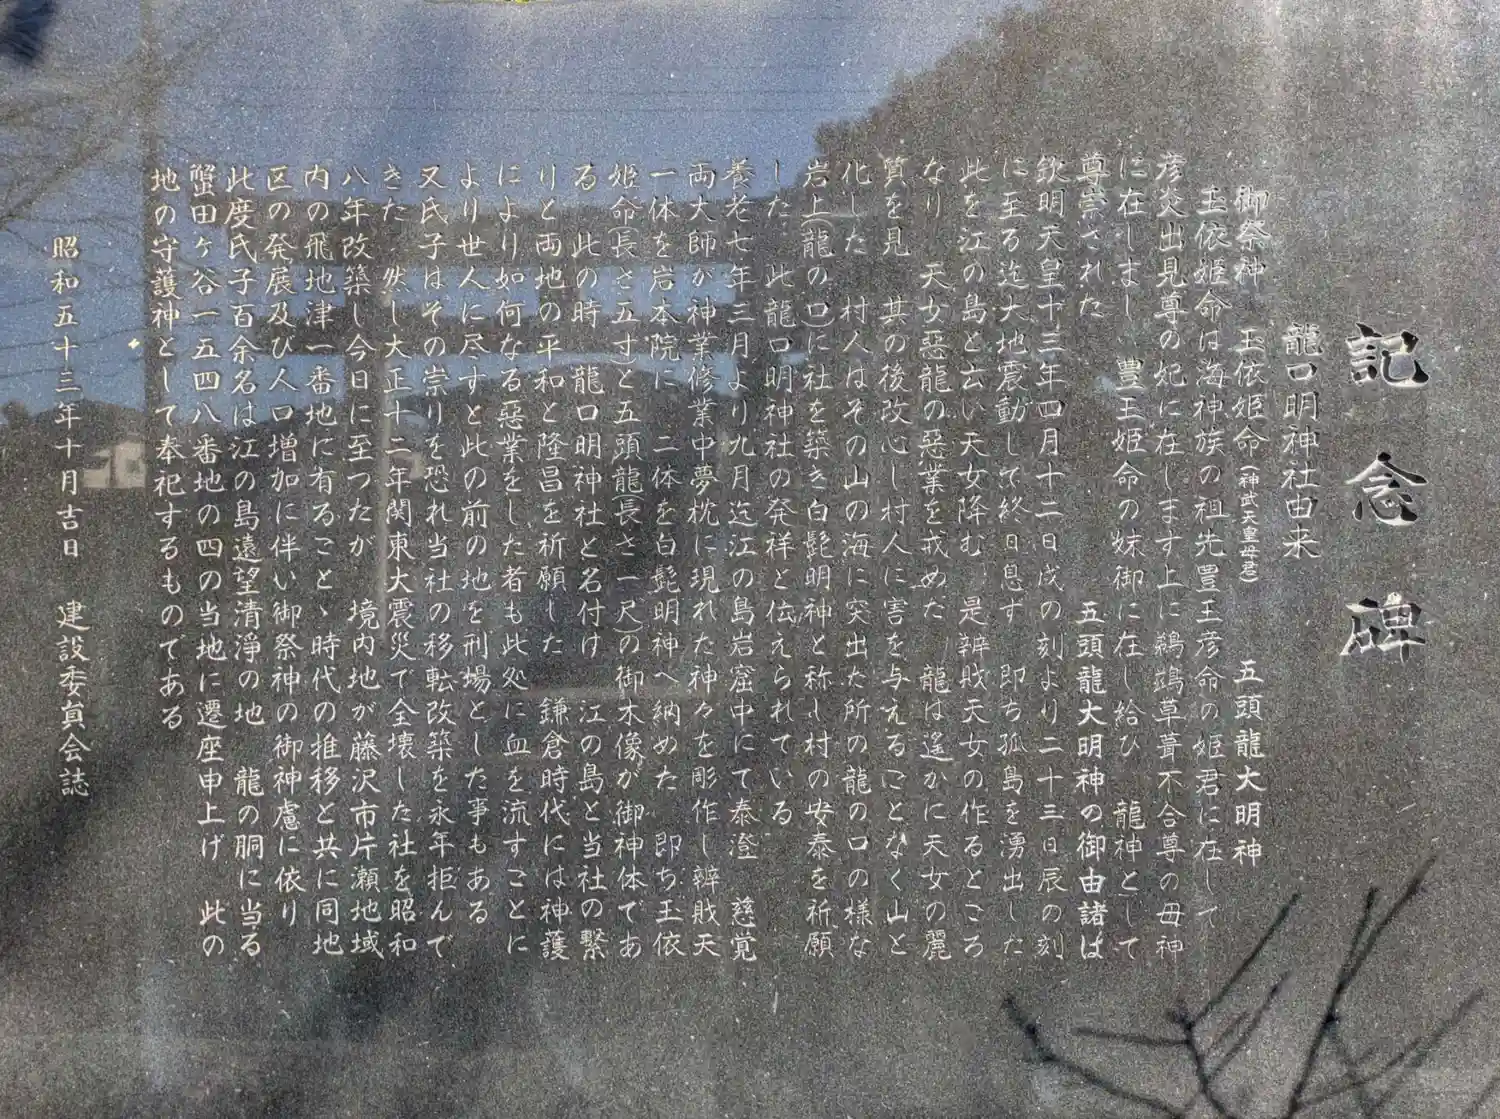 記念碑
龍口明神社由来
御祭神 玉依姫命(神武天皇母君) 五頭龍大明神
玉依姫命は海神族の祖先豊玉彦命の姫君に在して
彦炎出見尊の妃に在します上に鵜鵡草葺不合尊の母神
に在しまし 豊玉姫命の妹御に在し給ひ 龍神として
尊崇された 五頭龍大明神の御由諸は
欽明天皇十三年四月十二日戌の刻より二十三日辰の刻
に至る迄大地震動して終日息ず 即ち孤島を湧出した
此を江の島と云い天女降む 是辨戝天女の作るところ
なり 天女惡龍の惡業を戒めた 龍は遙かに天女の麗
質を見 其の後改心し村人に害を与えることなく山と
化した 村人はその山の海に突出た所の龍の口の様な
岩上(龍の口)に社を築き白髭明神と称し村の安泰を祈願
した 此龍口明神社の発祥と伝えられている
養老七年三月より九月迄江の島岩窟中にて泰澄 慈覚
両大師が神業修業中夢枕に現れた神々を彫作し辨戝天
一体を岩本院に 二体を白髭明神へ納めた 即ち玉依
姫命(長さ五寸)と五頭龍(長さ一尺)の御木像が御神体であ
る 此の時 龍口明神社と名付け 江の島と当社の繋
りと両地の平和と隆昌を祈願した 鎌倉時代には神護
により如何なる惡業をした者も此処に血を流すことに
より世人に尽すと此の前の地を刑場とした事もある
又氏子はその崇りを恐れ当社の移転改築を永年拒んで
きた 然し大正十二年関東大震災で全壊した社を昭和
八年改築し今日に至つたが 境内地が藤沢市片瀬地域
内の飛地津一番地に有ることゝ時代の推移と共に同地
区の発展及び人口増加に伴い御祭神の御神慮に依り
此度氏子百余名は江の島遠望清淨の地 龍の胴に当る
蟹田ヶ谷一五四八番地の四の当地に遷座申上げ 此の
地の守護神として奉祀するものである
昭和五十三年十月吉日 建設委員会誌